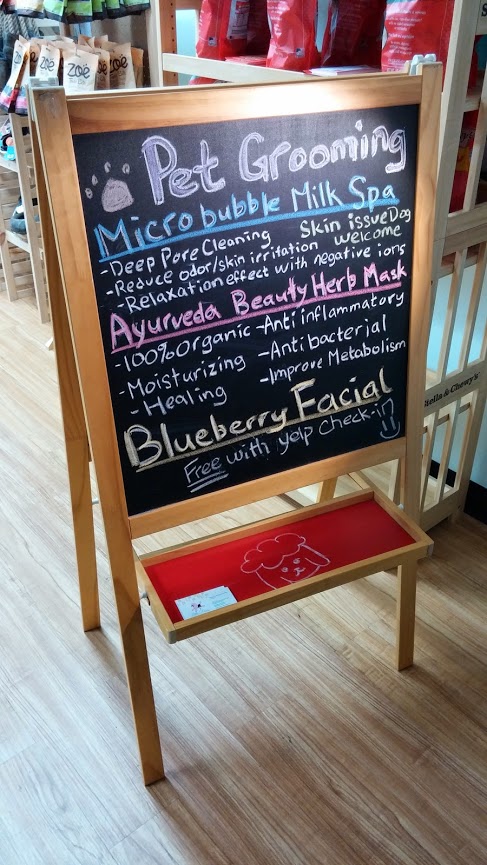 Pet Grooming
Microbubble Milk Spa
-Deep Pore Cleaning
Skin issue Dog
welcome
-Reduce odor/skin irritation
-Relaxation effect with negative ions
Ayurveda Beauty Herb Mask
-100% Organic
-Moisturizing
-Healing
-Anti inflammatory
-Antibacterial
-Improve Metabolism
Blueberry Facial
Free with yelp check-in
zoë
zoë
zoë
Stella & Chewy's